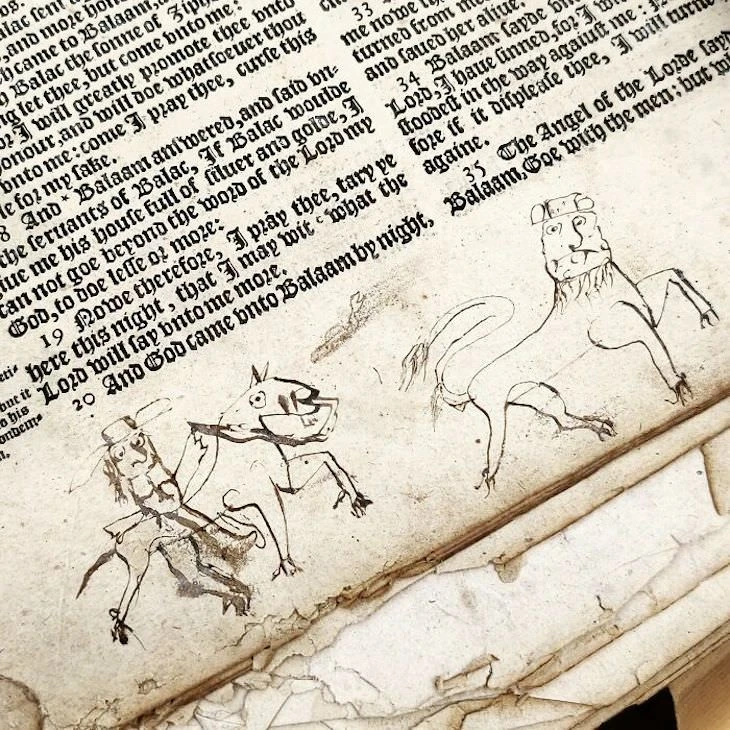 and more hono
came to Balaam,
Balac the sonne of Ziph
let thee, but come vnto me:
I will greatly promote thee vnto
onour, and will doe whatsoeuer thou
vnto me: come I pray thee, curse this
le for my sake.
8 And * Balaam answered, and said vn-
the seruants of Balac, If Balac woulde
giue me his house full of siluer and golde, I
can not goe beyond the word of the Lord my
God, to doe lesse or more:
19 Nowe therefore, I pray thee, tary ye
here this night, that I may wit c what the
Lord will say vnto me more.
20 And God came vnto Balaam by night,
33
me nowe
turned from me
and saued her aliue.
34 Balaam sayde vn
Lord, I haue sinned, for I w
stoodest in the way against me:
fore if it displease thee, I will turne
againe.
35 The Angel of the Lorde sayd
Balaam, Goe with the men: but
but it
his
ondem-